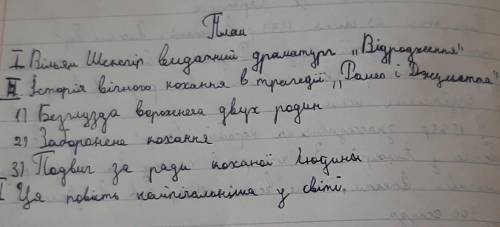 План
I Вільям Шекспір видатний драматург „Відродження"
II Історія вічного кохання в трагедії „Ромео і Джульєтта"
1) Безглузда ворожнеча двух родин
2) Заборонене кохання
3) Подвиг за ради коханої людини
I Ця повість найпечальніша у світі.